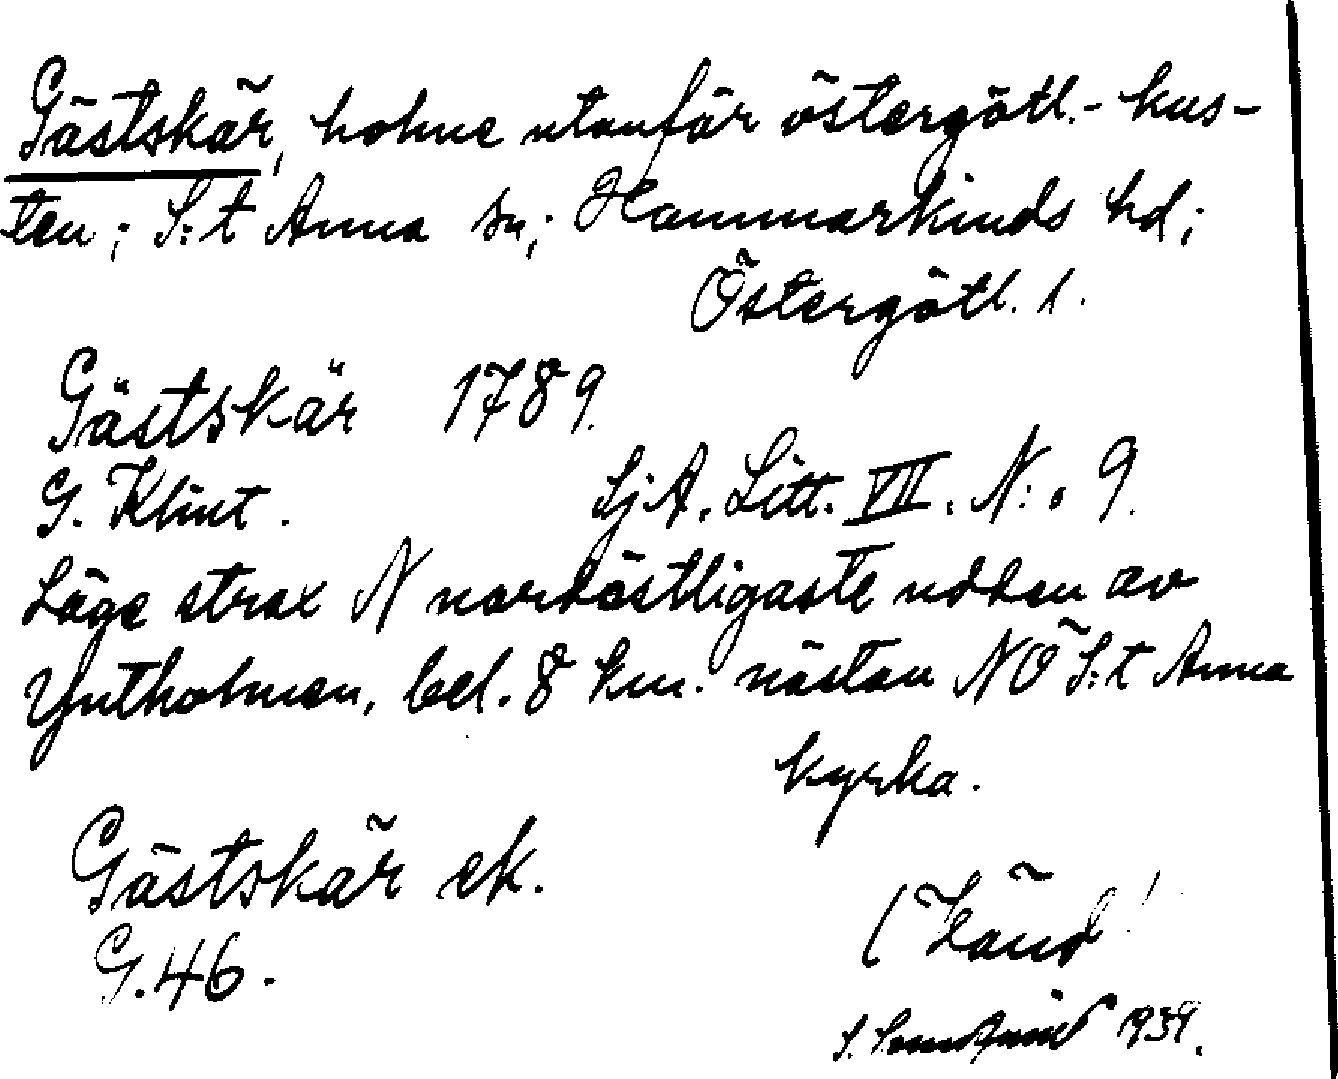 Gästskär, holme utanför östergötl.- kus-
ten; S:t Anna sn; Hammarkinds hd;
Östergötl. l.
Gästskär 1789.
G. Klint. SjA. Litt. VII. N:o 9.
Läge strax N nordöstligaste udden av
Yntholmen, bel. 8 km. nästan NO S:t Anna
kyrka.
Gästskär ek.
G. 46.
(Känd!
S. 1939.